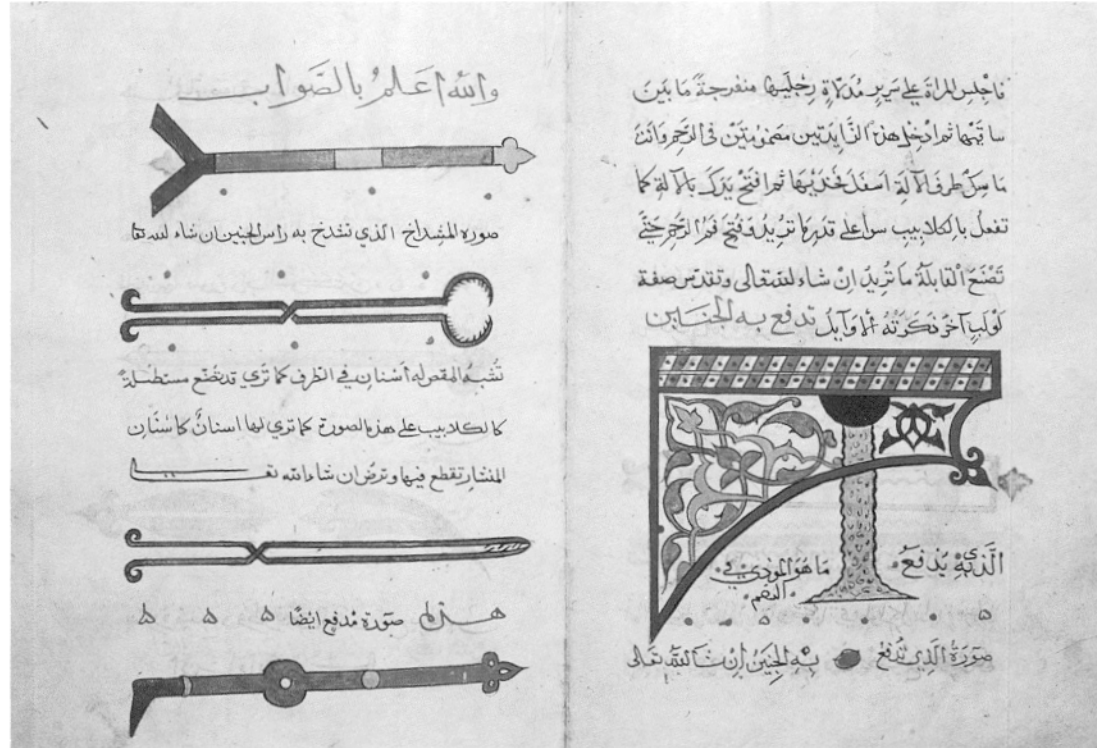 فاجلس المراة على سرير مدلاة رجليها منفرجة ما بين
ساقيها ثم ادخل هذه الزايدتين مضمومتين في الرحم وانت
ماسك طرف الآلة اسفل فخذيها ثم افتح يدك بالآلة كما
تفعل بالكلاليب سوا على قدر ما تريد وفتح فم الرحم حتى
تصنع القابلة ما تريد ان شاء الله تعالى وتقدس صفة
لولب آخر ذكرته الاوايل تدفع به
الذي به يدفع ما هو المودي في
صورة الذي تدفع به الجنين إن شا الله تعالى
والله اعلم بالصواب
صورة المشداخ الذي تشدخ به راس الجنين ان شاء الله
تشبه المقص له أسنان في الطرف كما تري قد تصنع مستطيلة
كالكلاليب على هذه الصورة كما تري لها اسنان كاسنان
المنشار تقطع فيها وترض ان شاء الله
هذه صورة مدفع ايضا